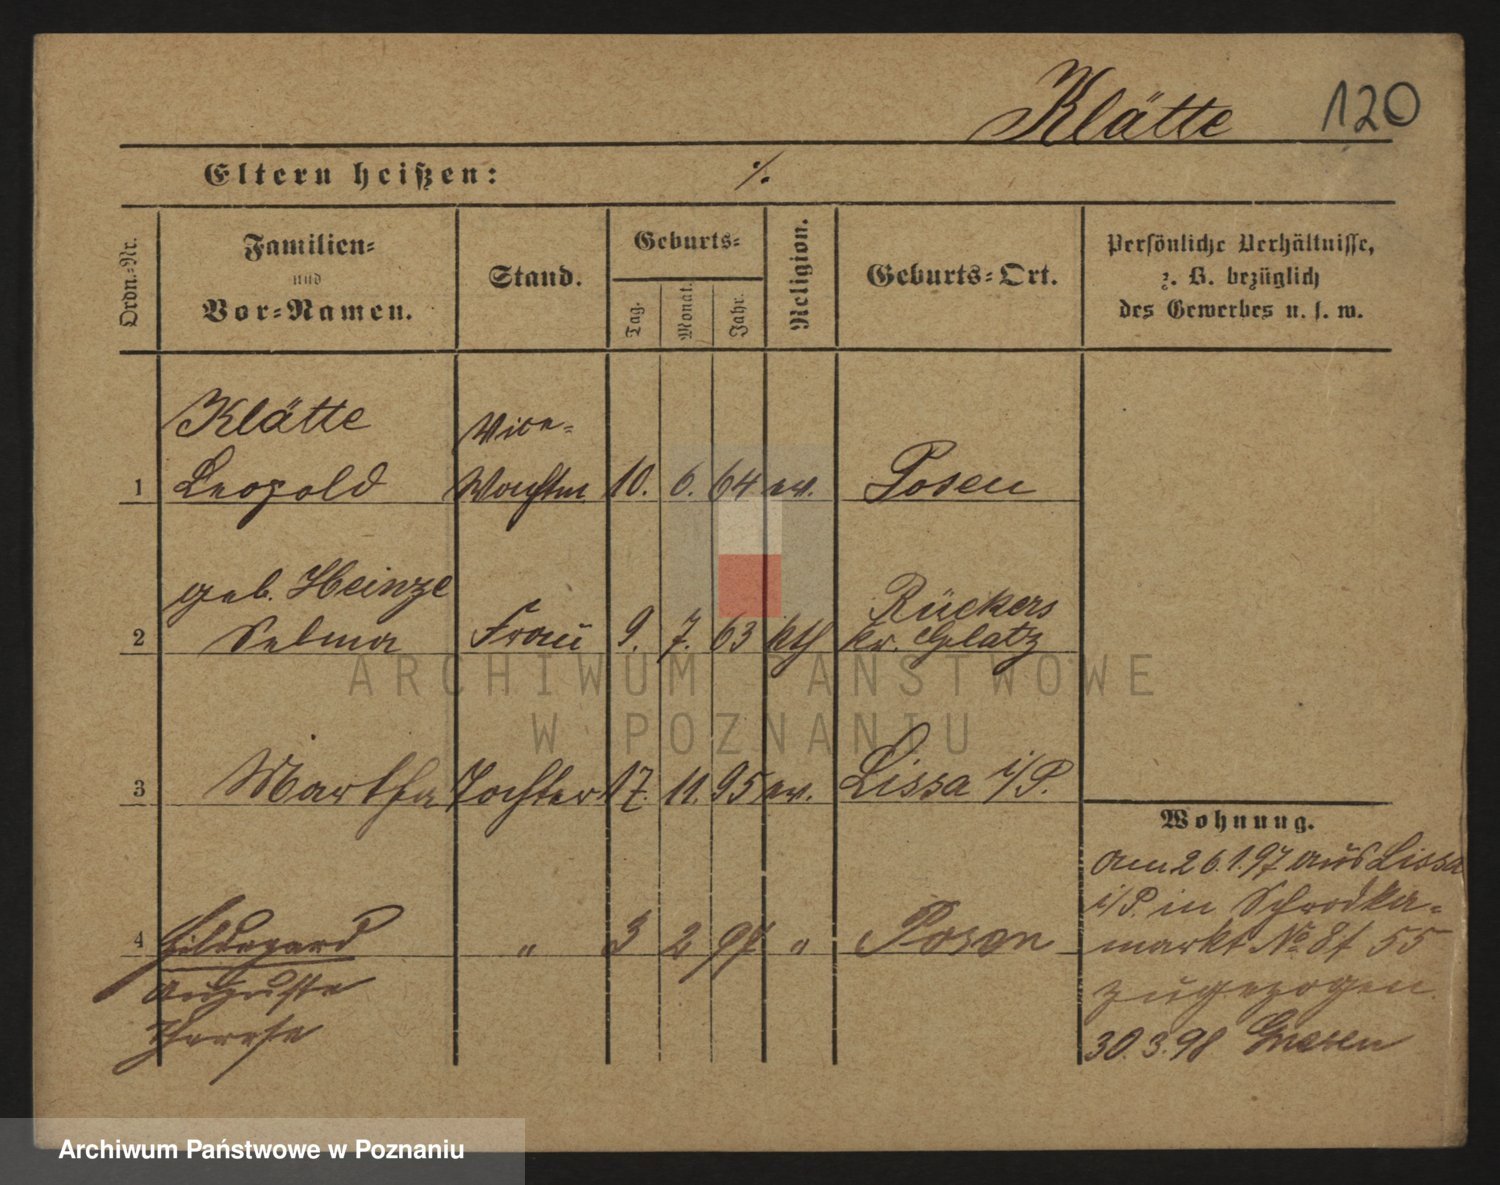 Klätte 120
Eltern heißen: ⁒
Ordn.-Nr.
Familien-
und
Vor-Namen.
Stand.
Geburts-
Tag.
Monat.
Jahr.
Religion.
Geburts-Ort.
Persönliche Verhältnisse,
z. B. bezüglich
des Gewerbes u. s. w.
Klätte Vice-
1 Leopold Wachtm 10. 6. 64 ev. Posen
geb. Heinze Rückers
2 Selma Frau 9. 7. 63 kth Kr. Glatz
3 Martha Tochter 17. 11. 95 ev. Lissa i/P.
4 Hildegard " 3 2 97 " Posen
Auguste
Therese
Wohnung.
am 26.1.97 aus Lissa
i/P. in Schrodka-
markt No 8 55
zugezogen.
30.3.98 Gnesen
ARCHIWUM PAŃSTWOWE
W POZNANIU
Archiwum Państwowe w Poznaniu